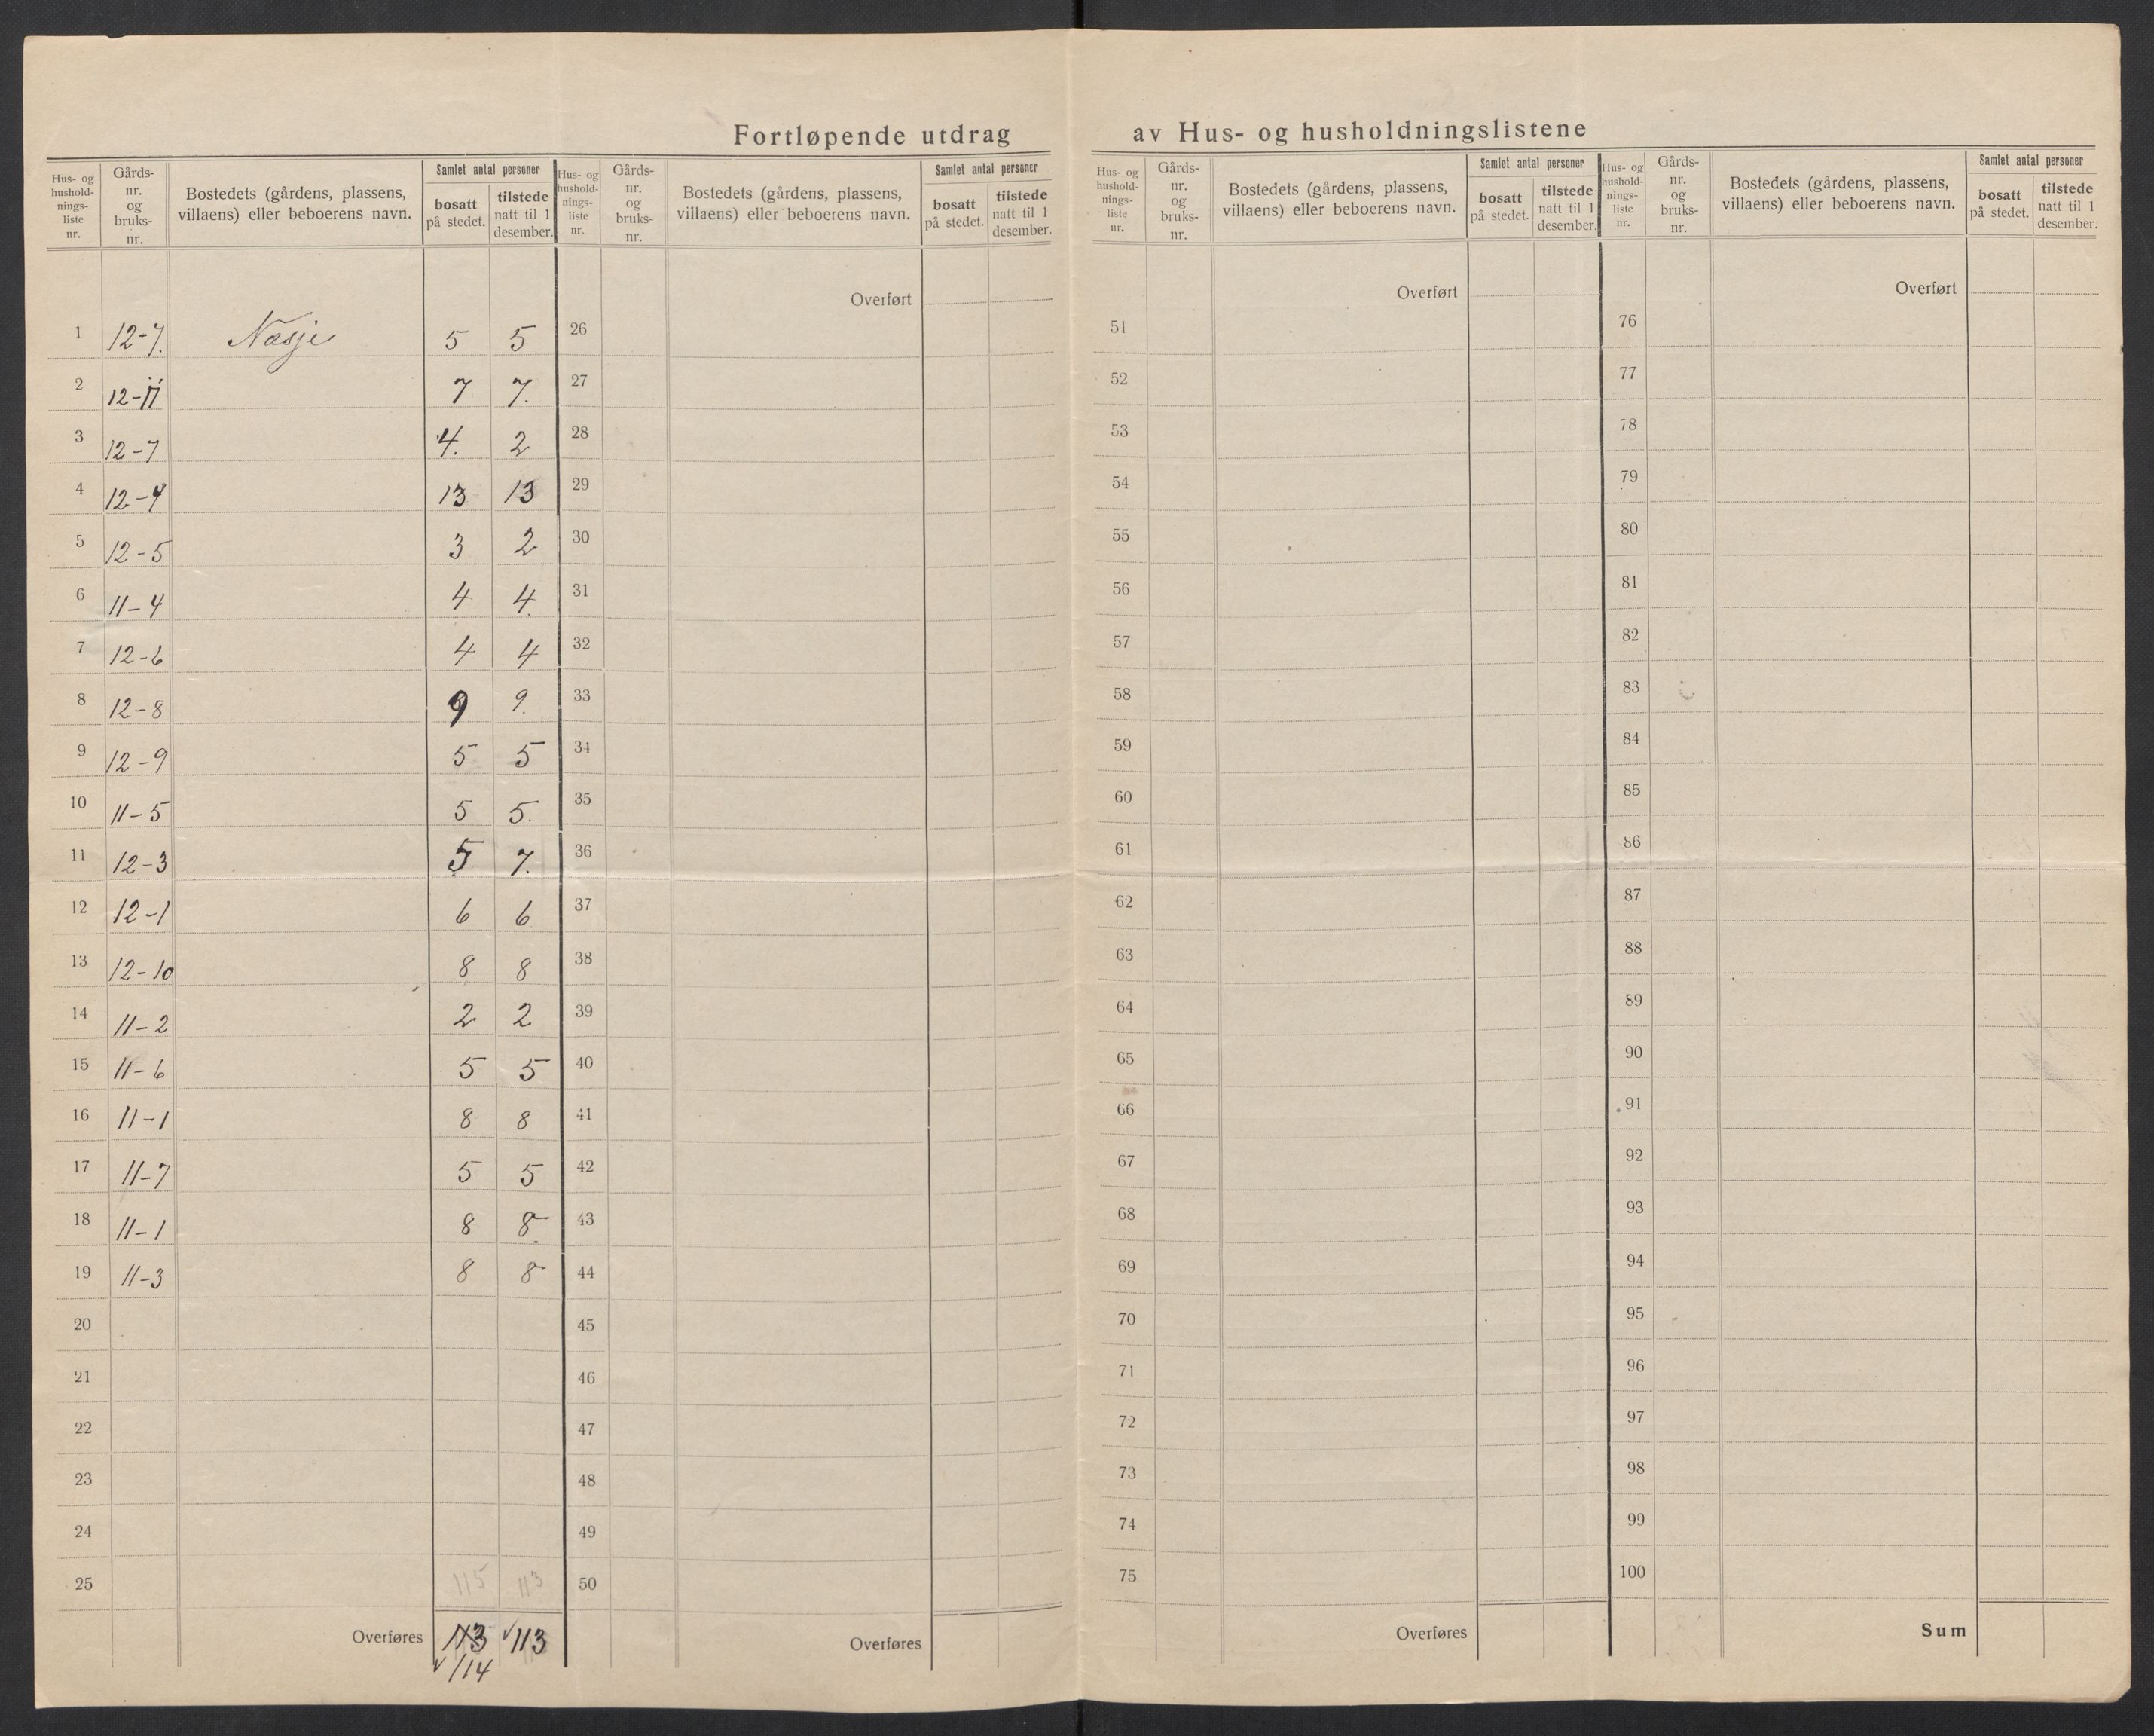 Fortløpende utdrag av Hus- og husholdningslistene
Hus- og hushold-nings-liste nr. Gårds-nr. og bruks-nr. Bostedets (gårdens, plassens, villaens) eller beboerens navn. Samlet antal personer bosatt på stedet. tilstede natt til 1 desember.
1 12-7. Næsje 5 5
2 12-11 7 7.
3 12-7 4. 2
4 12-4 13 13
5 12-5 3 2
6 11-4 4 4.
7 12-6 4 4
8 12-8 9 9.
9 12-9 5 5
10 11-5 5 5.
11 12-3 5 7.
12 12-1 6 6
13 12-10 8 8
14 11-2 2 2
15 11-6 5 5
16 11-1 8 8
17 11-7 5 5
18 11-1 8 8.
19 11-3 8 8
20
21
22
23
24
25 115 113
Overføres 113 113
114
Hus- og hushold-nings-liste nr. Gårds-nr. og bruks-nr. Bostedets (gårdens, plassens, villaens) eller beboerens navn. Samlet antal personer bosatt på stedet. tilstede natt til 1 desember.
Overført
26
27
28
29
30
31
32
33
34
35
36
37
38
39
40
41
42
43
44
45
46
47
48
49
50
Overføres
Hus- og hushold-nings-liste nr. Gårds-nr. og bruks-nr. Bostedets (gårdens, plassens, villaens) eller beboerens navn. Samlet antal personer bosatt på stedet. tilstede natt til 1 desember.
Overført
51
52
53
54
55
56
57
58
59
60
61
62
63
64
65
66
67
68
69
70
71
72
73
74
75
Overføres
Hus- og hushold-nings-liste nr. Gårds-nr. og bruks-nr. Bostedets (gårdens, plassens, villaens) eller beboerens navn. Samlet antal personer bosatt på stedet. tilstede natt til 1 desember.
Overført
76
77
78
79
80
81
82
83
84
85
86
87
88
89
90
91
92
93
94
95
96
97
98
99
100
Sum